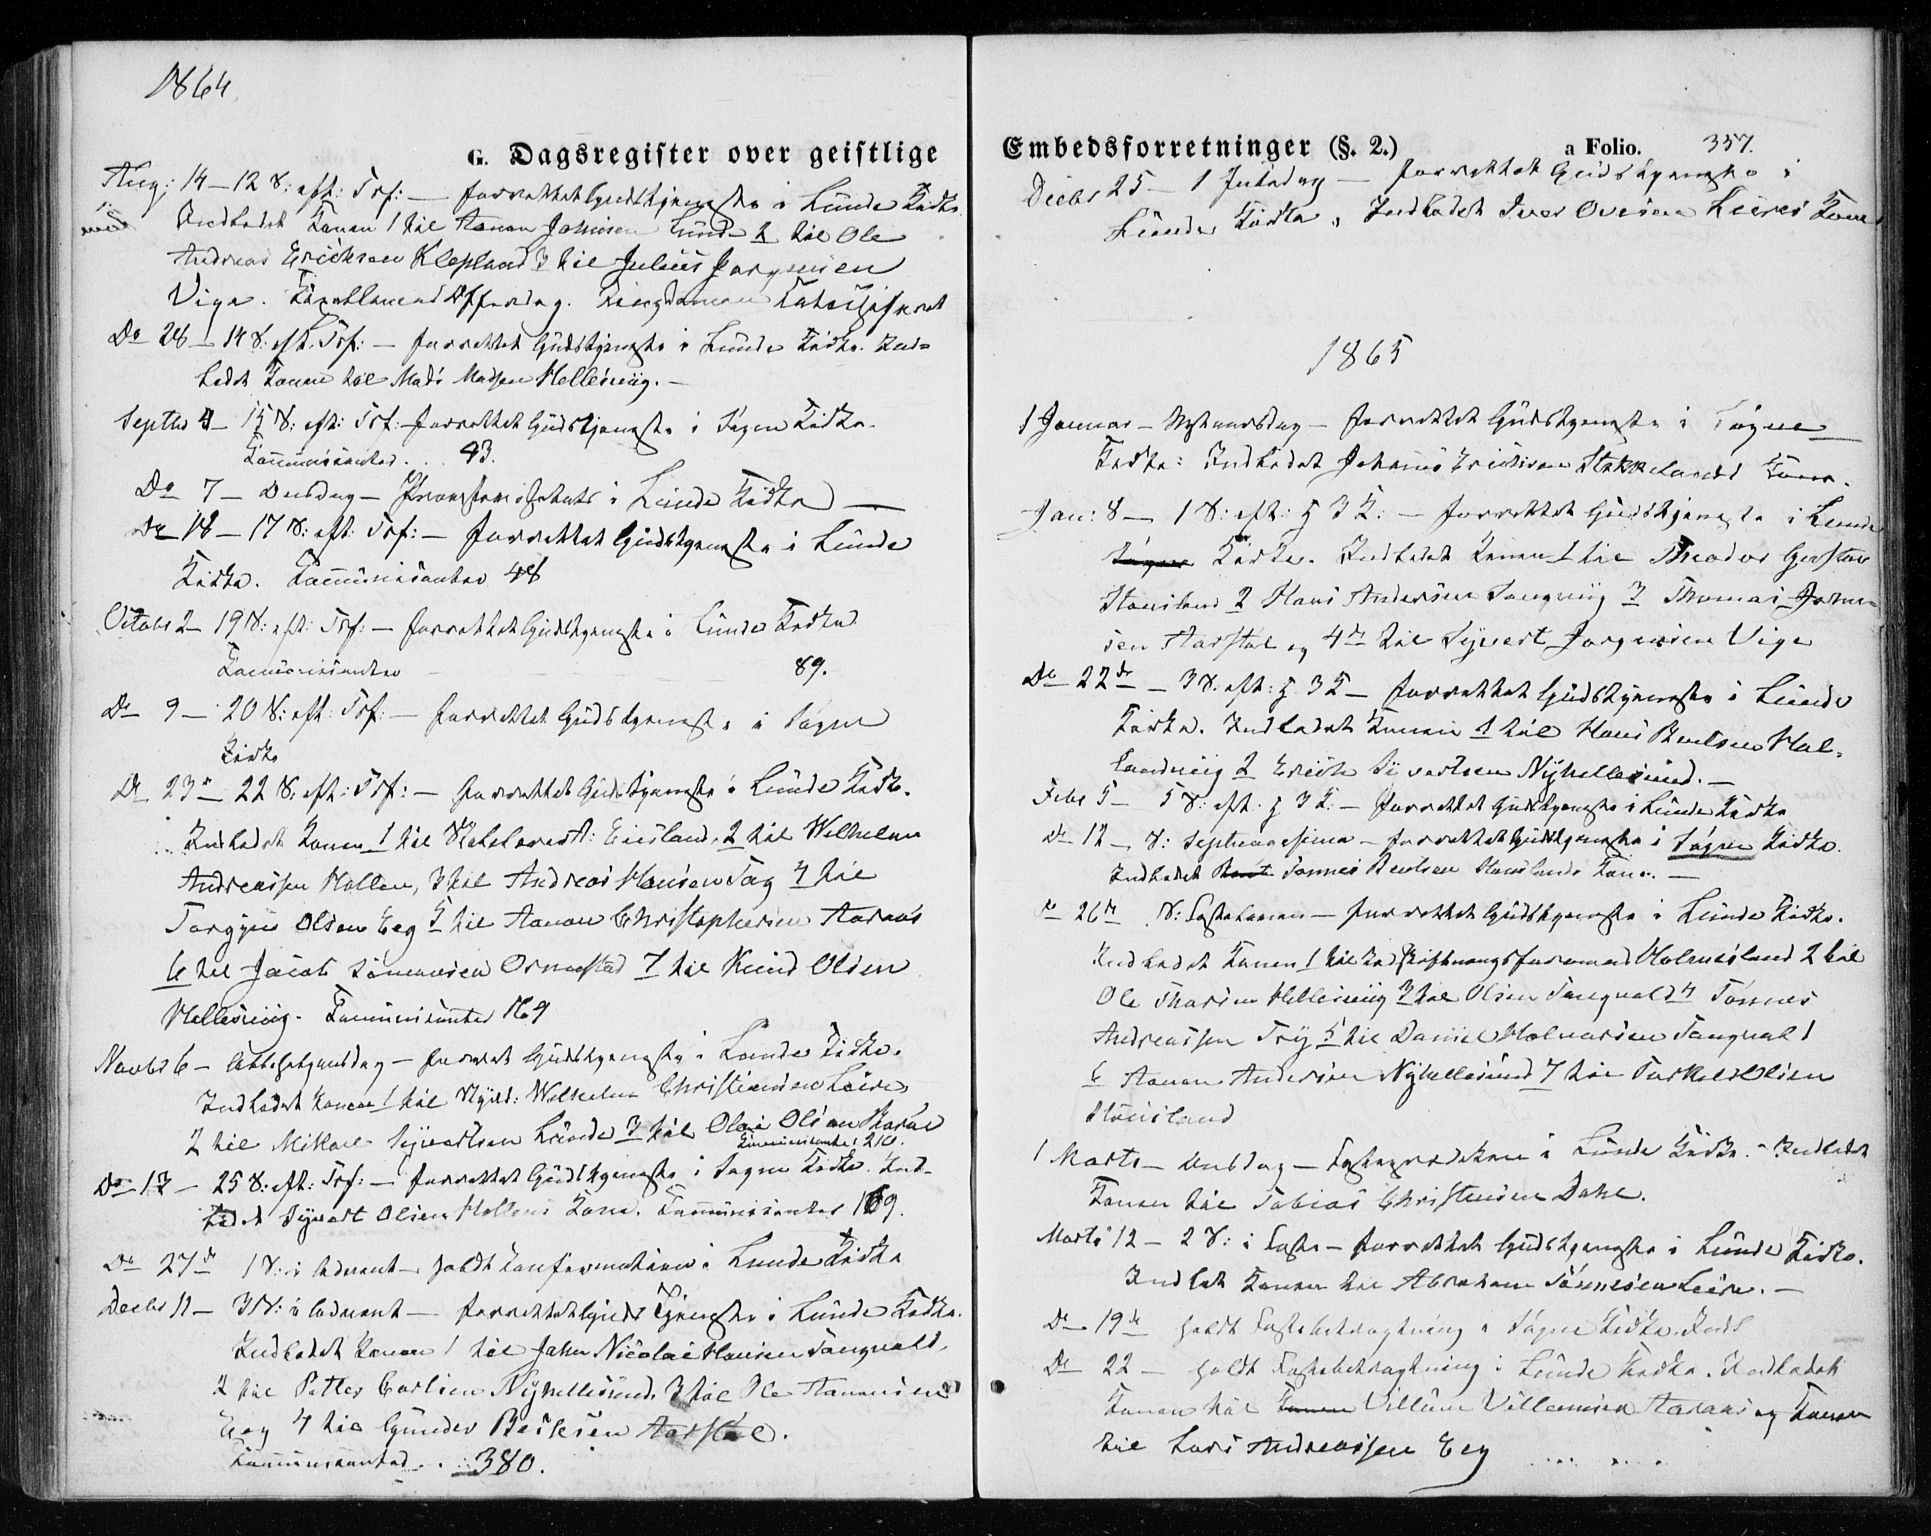 1864
G. Dagsregister over geistlige
Aug: 14 – 12 S: eft: Trf: – forrettet Gudstjeneste i Lunde Kirke
Indledet Konen 1 til Aanon Lunde 2 til Ole
Andreas Erichsen Klepland 3 til Julius Jørgensen
Vige. Offerdag.
Do 28 – 14 S: eft. Trf: – forrettet Gudstjeneste i Lunde Kirke. Ind=
ledet Konen til Mads Madsen Hellesviig. –
Septbr 4 – 15 S: eft: Trf: forrettet Gudstjeneste i Søgne Kirke.
Communicanter . . 43.
Do 7 – Onsdag – i Lunde Kirke –
Do 18 – 17 S: eft: Trf: – forrettet Gudstjeneste i Lunde
Kirke. Communicanter 48
Octobr 2 – 19 S: eft: Trf: – forrettet Gudstjeneste i Lunde Kirke
Communicanter 89.
Do 9 – 20 S: eft: Trf: – forrettet Gudstjeneste i Søgne
Kirke
Do 23 – 22 S. eft: Trf: – forrettet Gudstjeneste i Lunde Kirke.
Indledet Konen 1 til 2 til Wilhelm
Andreassen Hollen, 3 til Andreas Hansen Tag 4 til
Torgjus Olsen Eeg 5 til Aanon Christophersen Aaraas
6 til Jacob Tønnesen Ormestad 7 til Knud Olsen
Hellesviig. Communicanter 169
Novbr 6 – forrettet Gudstjeneste i Lunde Kirke.
Indledet Konen 1 til Wilhelm Christiansen Leire
2 til Mikael Syvertsen Lunde 3 til Olai Olsen
Communicanter 210.
Do 13 – 25 S: eft: Trf: – forrettet Gudstjeneste i Søgne Kirke. Ind-
ledet Syvert Olsen Hollens Kone. Communicanter 169.
Do 27de 1 S: i Advent – holdt Confirmation i Lunde Kirke
Decbr 11 – 3 S: i Advent – forrettet Guds Tjeneste i Lunde Kirke.
Indledet Konen 1 til John Nicolai Hansen Tangvald,
2 til Petter Carlsen Nyhellesund, 3 til Ole Aanonsen
Eeg 4 til Gunder Berntsen Aarstøl.
Communicanter . . 380.
Embedsforretninger (§. 2.) a Folio. 357.
Decbr 25 – 1 Juledag – forrettet Gudstjeneste i
Lunde Kirke. Indledet Iver Ovesen Leires Kone
1865
1 Januar – Nytaarsdag – forrettet Gudstjeneste i Søgne
Kirke: Indledet Johannes Erichsen Stokkelands Kone.
Jan: 8 – 1 S: eft: H 3 K: – forrettet Gudstjeneste i Lunde
Søgne Kirke. Indledet Konen 1 til Theodor Gustav
Stausland 2 Hans Andersen Langviig 3 Thomas
sen Aarstøl og 4de til Syvert Jørgensen Vige
Do 22de – 3 S. eft: H. 3 K – forrettet Gudstjeneste i Lunde
Kirke. Indledet Konen 1 til Hans Berntsen Hal-
landviig 2 Erich Syvertsen Nyhellesund. –
Febr 5 – 5 S: eft: H 3 K: – forrettet Gudstjeneste i Lunde Kirke
Do 12 – S: Septuagesima – forrettet Gudstjeneste i Søgne Kirke.
Indledet Tønnes Berntsen Stauslands Kone. –
Do 26de S: Fastelavn – forrettet Gudstjeneste i Lunde Kirke.
Indledet Konen 1 til Holmesland 2 til
Ole Hellesviig 3 til Olsen Tangvald 4 Tønnes
Andreassen Try 5 til Daniel Tangvald
6 Aanon Andersen Nyhellesund 7 til Torkel Olsen
Stausland
1 Marts – Onsdag – Fasteprædiken i Lunde Kirke. – Indledet
Konen til Tobias Christensen Dahl.
Marts 12 – 2 S: i Faste – forrettet Gudstjeneste i Lunde Kirke.
Indlet Konen til Abraham Tønnesen Leire. –
Do 19de holdt Fastebetragtning i Søgne Kirke.
Do 22 – holdt Fastebetragtning i Lunde Kirke. Indledet
Konen til Konen Villum Villumsen Aaraas og Konen
til Lars Andreassen Eeg